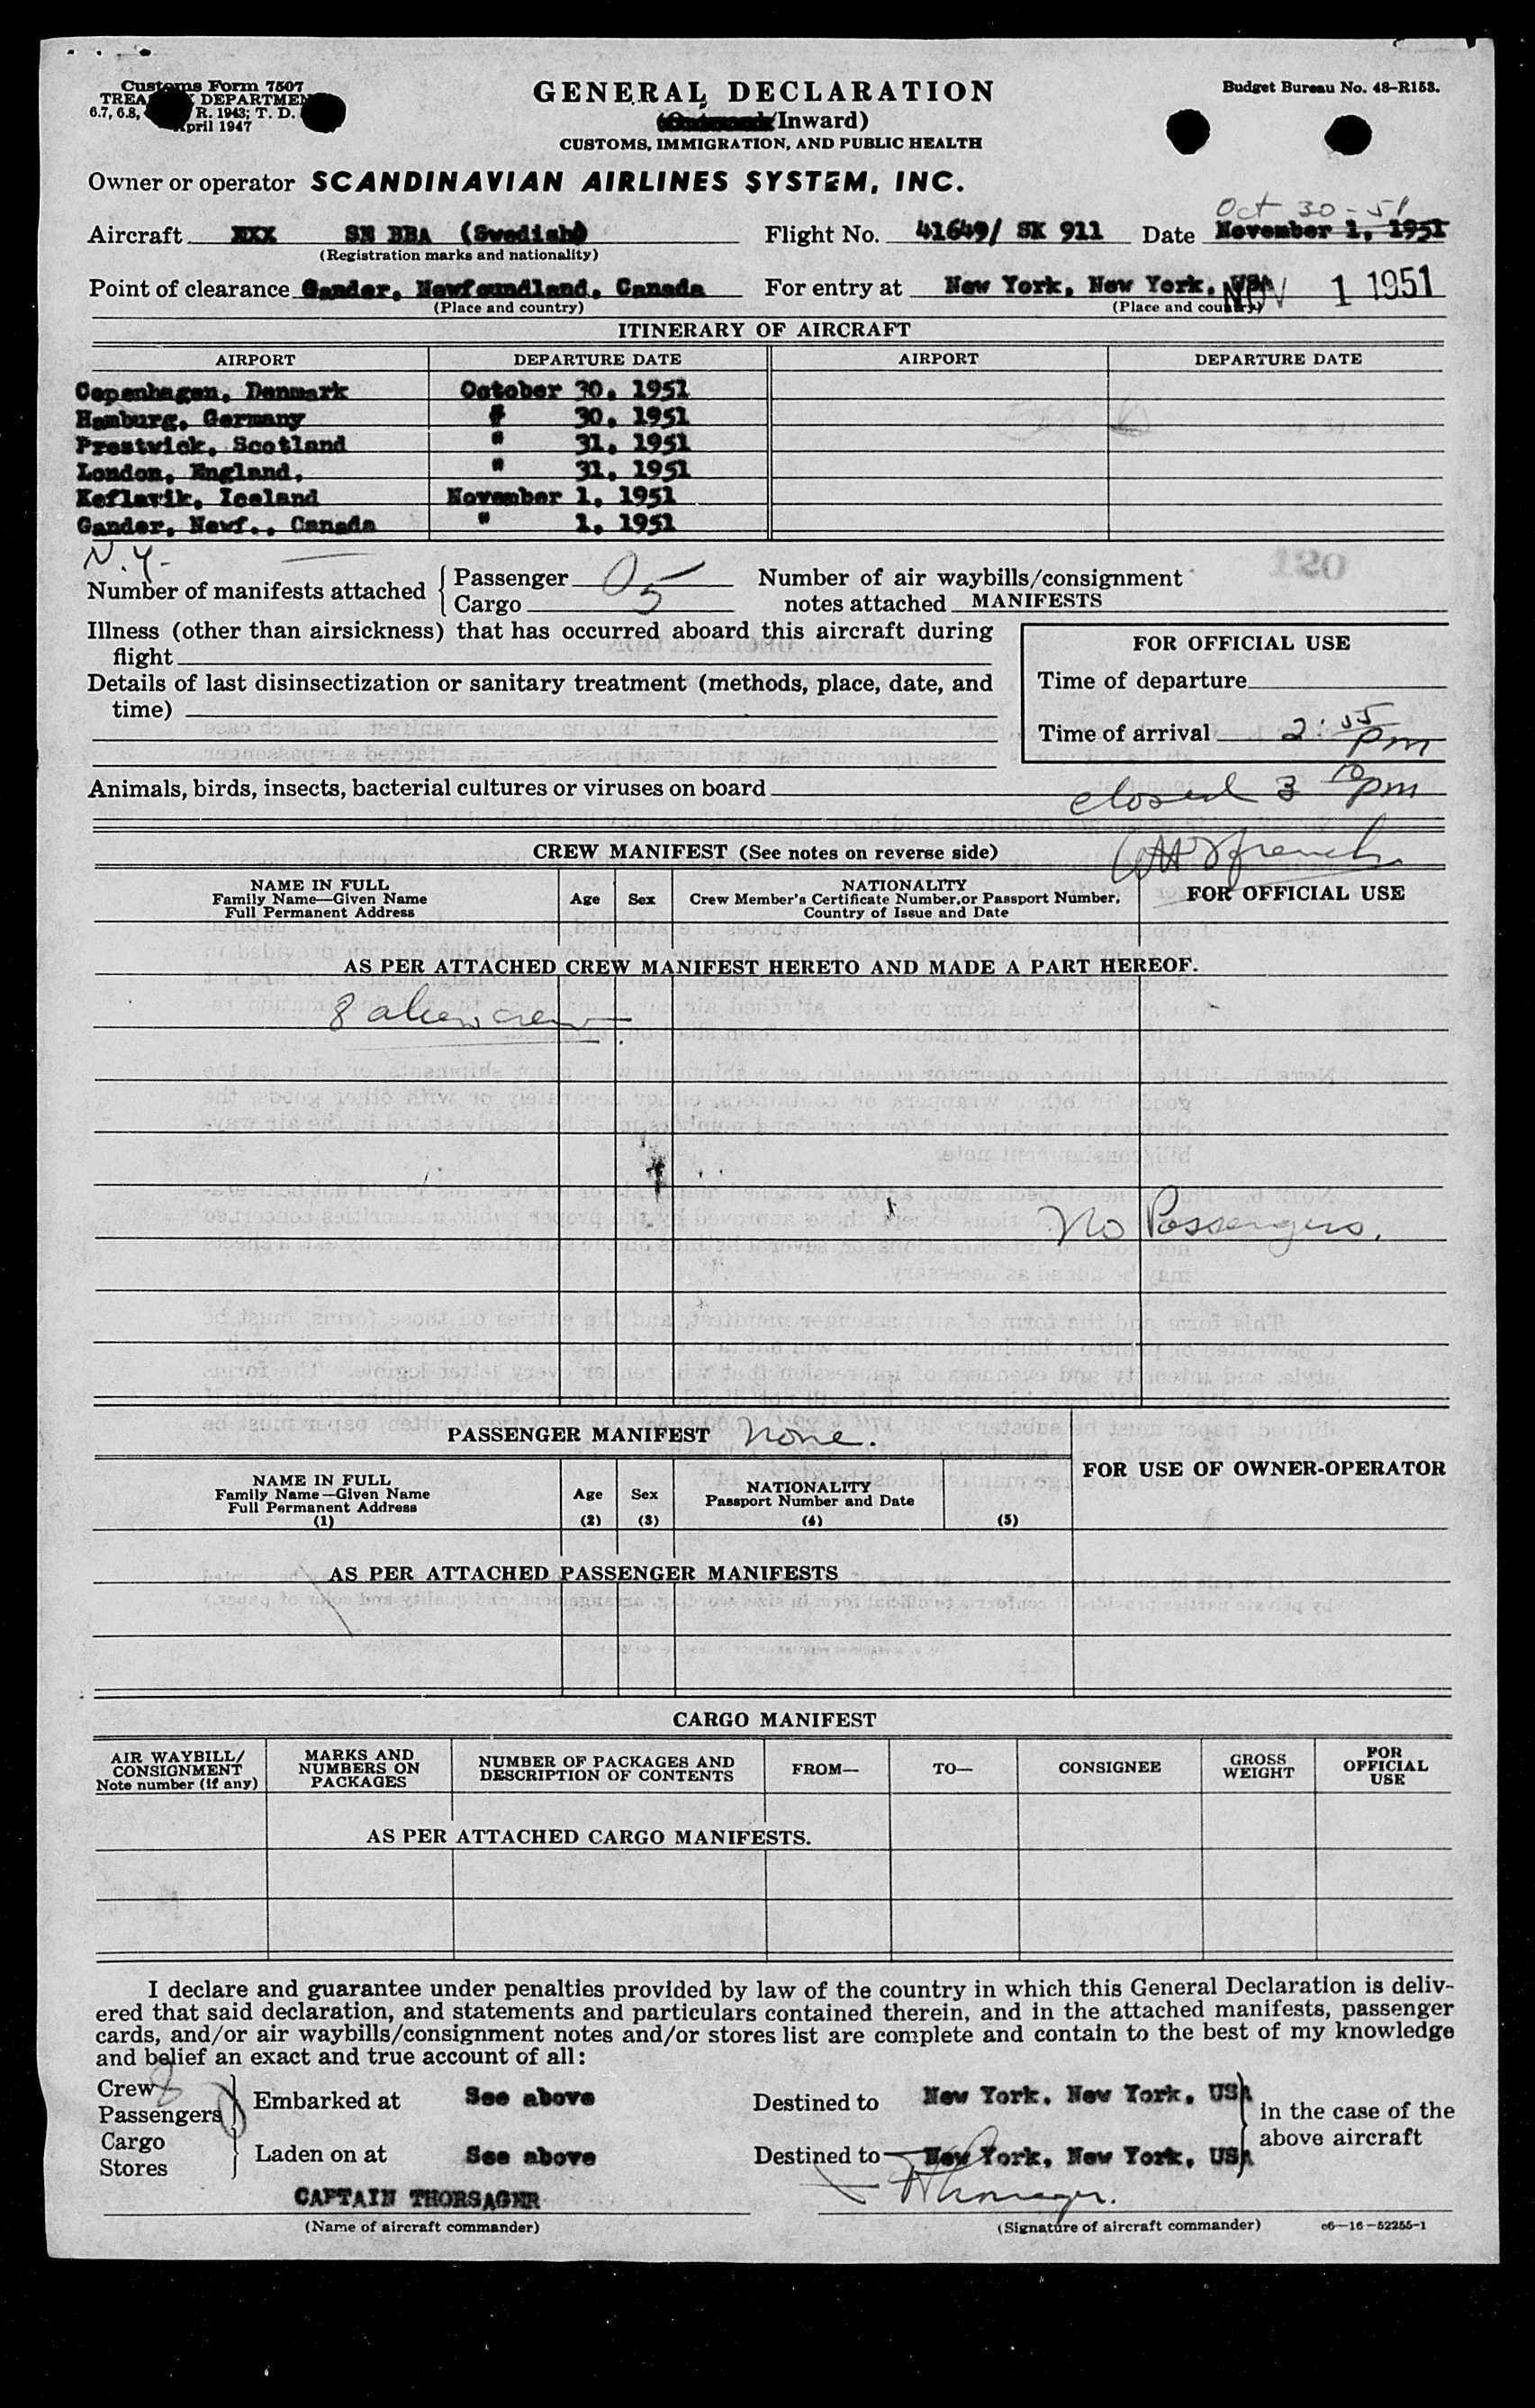 Customs Form 7507
TREA DEPARTMEN
6.7, 6.8, R. 1943; T. D.
April 1947
GENERAL DECLARATION
Inward)
CUSTOMS, IMMIGRATION, AND PUBLIC HEALTH
Budget Bureau No. 48-R153.
Owner or operator SCANDINAVIAN AIRLINES SYSTEM, INC.
Oct 30-51
Aircraft XXX SE BBA (Swedish) Flight No. 41649/ SK 911 Date November 1, 1951
(Registration marks and nationality)
Point of clearance Gander, Newfoundland, Canada For entry at New York, New York, USA NOV 1 1951
(Place and country) (Place and country)
ITINERARY OF AIRCRAFT
AIRPORT DEPARTURE DATE AIRPORT DEPARTURE DATE
Copenhagen, Denmark October 30, 1951
Hamburg, Germany " 30, 1951
Prestwick, Scotland " 31, 1951
London, England, " 31, 1951
Keflavik, Iceland November 1, 1951
Gander, Newf., Canada " 1, 1951
N.Y.
Number of manifests attached { Passenger 0 Number of air waybills/consignment
Cargo 5 notes attached MANIFESTS
120
Illness (other than airsickness) that has occurred aboard this aircraft during
flight
Details of last disinsectization or sanitary treatment (methods, place, date, and
time)
FOR OFFICIAL USE
Time of departure
Time of arrival 2:55 pm
Animals, birds, insects, bacterial cultures or viruses on board
closed 3 10 pm
CREW MANIFEST (See notes on reverse side)
NAME IN FULL
Family Name—Given Name
Full Permanent Address
Age Sex
NATIONALITY
Crew Member's Certificate Number, or Passport Number,
Country of Issue and Date
FOR OFFICIAL USE
AS PER ATTACHED CREW MANIFEST HERETO AND MADE A PART HEREOF.
8 alien crew
No Passengers.
PASSENGER MANIFEST None.
NAME IN FULL
Family Name—Given Name
Full Permanent Address
(1)
Age
(2)
Sex
(3)
NATIONALITY
Passport Number and Date
(4) (5)
FOR USE OF OWNER-OPERATOR
AS PER ATTACHED PASSENGER MANIFESTS
CARGO MANIFEST
AIR WAYBILL/
CONSIGNMENT
Note number (if any)
MARKS AND
NUMBERS ON
PACKAGES
NUMBER OF PACKAGES AND
DESCRIPTION OF CONTENTS
FROM— TO— CONSIGNEE
GROSS
WEIGHT
FOR
OFFICIAL
USE
AS PER ATTACHED CARGO MANIFESTS.
I declare and guarantee under penalties provided by law of the country in which this General Declaration is deliv-
ered that said declaration, and statements and particulars contained therein, and in the attached manifests, passenger
cards, and/or air waybills/consignment notes and/or stores list are complete and contain to the best of my knowledge
and belief an exact and true account of all:
Crew 8
Passengers 0 } Embarked at See above Destined to New York, New York, USA
Cargo
Stores } Laden on at See above Destined to New York, New York, USA
in the case of the
above aircraft
CAPTAIN THORSAGER
(Name of aircraft commander) (Signature of aircraft commander) c6—16—52255-1